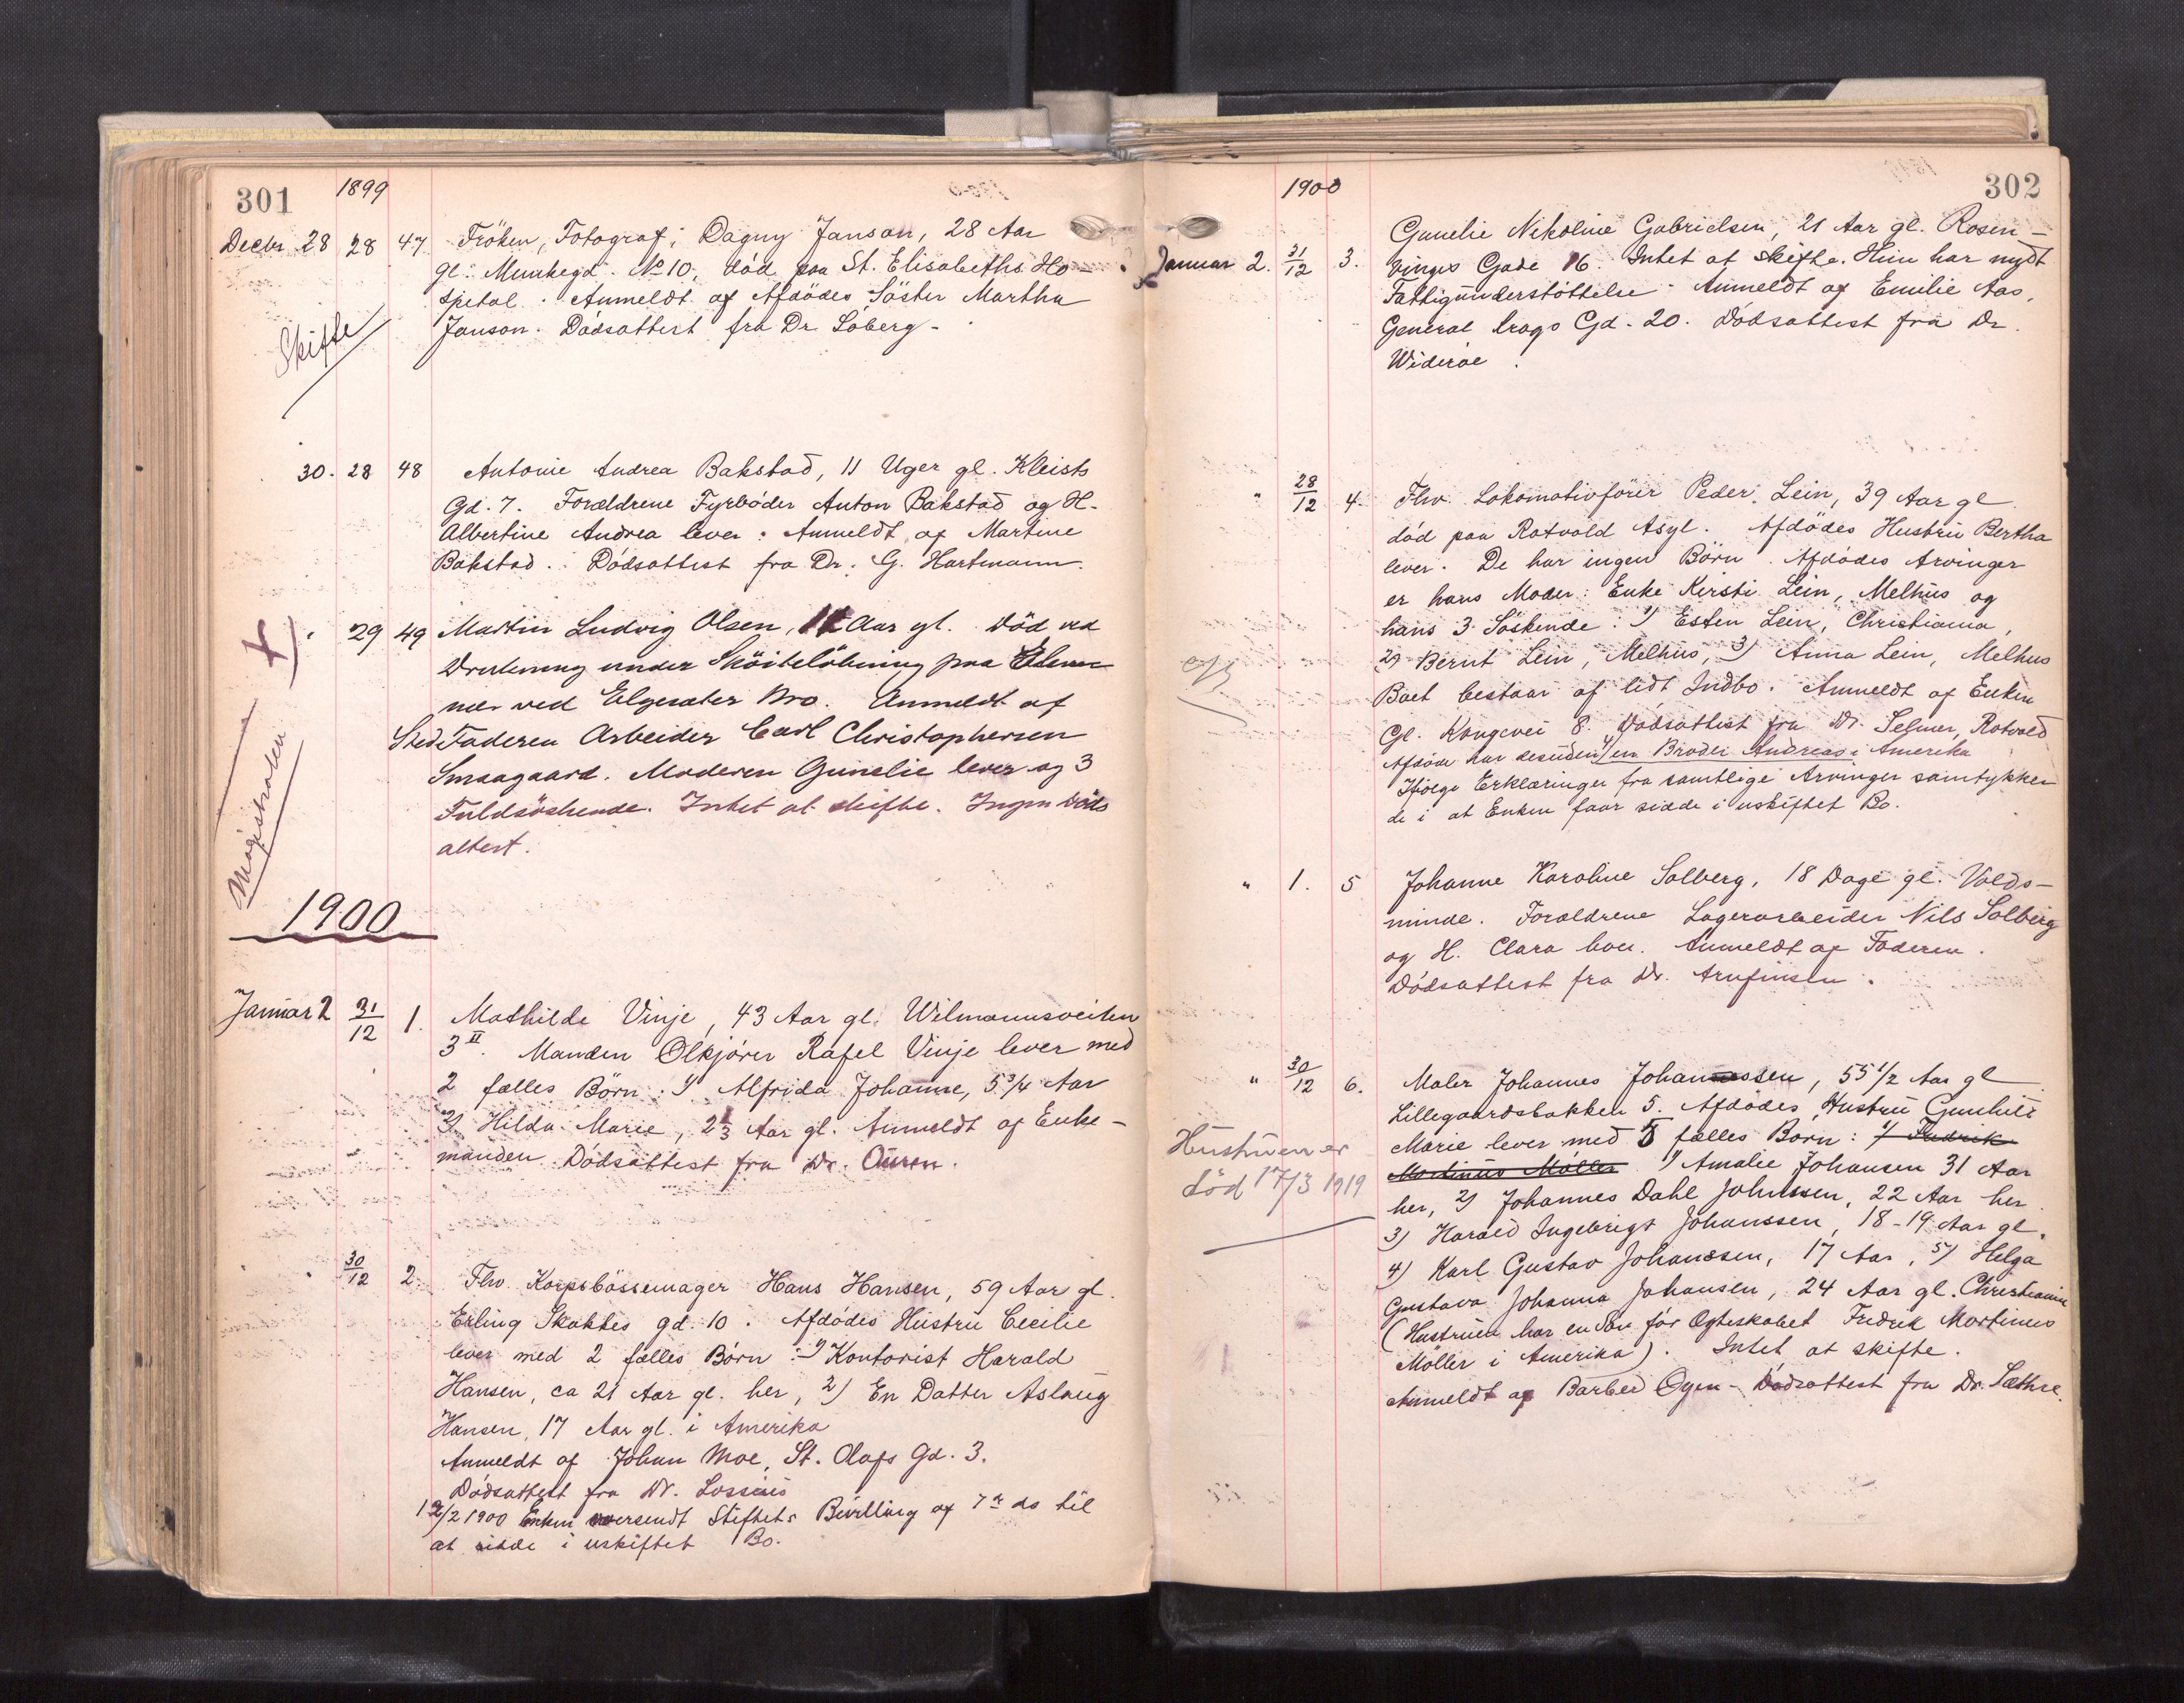 301
1899
Decbr 28 28 47 Fröken, Fotograf, Dagny Janson, 28 Aar
gl. Munkegd. No 10, död paa St. Elisabeths Ho-
spital. Anmeldt af Afdödes Söster Martha
Janson. Dödsattest fra Dr Söberg-
Skifte
30. 28 48 Antonie Andrea Bakstad, 11 Uger gl. Kleists
Gd. 7. Forældrene Fyrböder Anton Bakstad og H.
Albertine Andrea lever. Anmeldt af Martine
Bakstad. Dödsattest fra Dr. G. Hartmann.
" 29 49 Martin Ludvig Olsen, Aar gl. Död ved
Drukning under Sköitelöbning paa
ved Elgesæter Bro. Anmeldt af
StedFaderen Arbeider Carl Christophersen
Smaagaard. Moderen Gunelie lever og 3
Fuldsöskende. Intet at skifte. Ingen Döds
attest.
Magistraten
1900
Januar 2 31/12 1. Mathilde Vinje, 43 Aar gl. Wilmannsveiten
3 II. Manden Ölkjörer Rafel Vinje lever med
2 fælles Börn: 1) Alfrida Johanne, 5 3/4 Aar
2) Hilda Marie, 2 1/3 Aar gl. Anmeldt af Enke-
manden Dödsattest fra Dr. Auren.
" 30/12 2. Fhv. Korpsbössemager Hans Hansen, 59 Aar gl.
Erling Skaktes gd. 10. Afdödes Hustru Cecilie
lever med 2 fælles Börn: 1) Kontorist Harald
Hansen, ca 21 Aar gl. her, 2) En Datter Aslaug
Hansen, 17 Aar gl. i Amerika
Anmeldt af Johan Moe, St. Olafs Gd. 3.
Dödsattest fra Dr. Lossius
12/2 1900 Enken oversendt Stiftets Bevilling af 7de ds til
at sidde i uskiftet Bo.
302
1900
Januar 2. 31/12 3. Gunelie Nikoline Gabrielsen, 21 Aar gl. Rosen-
vinges Gade 16. Intet at skifte. Hun har nydt
Fattigunderstöttelse. Anmeldt af Emilie Aas,
General Krags Gd. 20. Dödsattest fra Dr.
Wideröe.
" 28/12 4. Fhv. Lokomotivförer Peder Lein, 39 Aar gl
död paa Rotvold Asyl. Afdödes Hustru Bertha
lever. De har ingen Börn. Afdödes Arvinger
er hans Moder: Enke Kirsti Lein, Melhus og
hans 3 Söskende: 1) Esten Lein, Christiania,
2) Bernt Lein, Melhus, 3) Anna Lein, Melhus
Boet bestaar af lidt Indbo. Anmeldt af Enken
Gl. Kongevei 8. Dödsattest fra Dr. Selmer, Rotvold
Afdöde har desuden 4) en Broder Andreas i Amerika
Ifölge Erklæringer fra samtlige Arvinger samtykker
de i at Enken faar sidde i uskiftet Bo.
" 1. 5 Johanne Karoline Solberg, 18 Dage gl. Volds-
minde. Forældrene Lagerarbeider Nils Solberg
og H. Clara lever. Anmeldt af Faderen.
Dödsattest fra Dr. Arnfinsen.
" 30/12 6. Maler Johannes Johannessen, 55 1/2 Aar gl
Lillegaardsbakken 5. Afdödes Hustru Gunhild
Marie lever med 5 fælles Börn: 1) Fredrik
Martinus Möller 1) Amalie Johansen 31 Aar
her, 2) Johannes Dahl Johnssen, 22 Aar her
3) Harald Ingebrigt Johanssen, 18-19 Aar gl.
4) Karl Gustav Johanssen, 17 Aar, 5) Helga
Gustava Johanna Johansen, 24 Aar gl. Christiania
(Hustruen har en Sön för Ægteskabet Fredrik Martinus
Möller i Amerika). Intet at skifte.
Anmeldt af Barber Oyen - Dödsattest fra Dr. Sæthre.
Hustruen er
död 17/3 1919